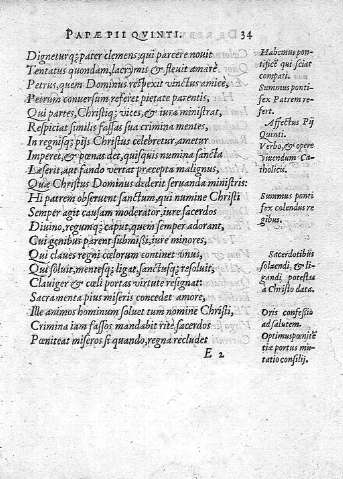 PAPÆ PII QVINTI. 34
Digneturq; pater clemens; qui parcere nouit
Tentatus quondam, lacrymis & fleuit amarè
Petrus, quem Dominus respexit vinctus amicè,
Petrum conuersum referet pietate parentis,
Qui partes, Christiq; vices, & iura ministrat,
Respiciat similis fassas sua crimina mentes,
In regnisq; pijs Christus celebretur, ametur
Imperet, & pœnas det, quisquis numina sancta
Læserit, aut fando vertat præcepta malignus,
Quæ Christus Dominus dederit seruanda ministris:
Hi patrem obseruent sanctum, qui numine Christi
Semper agit causam moderator, iure sacerdos
Diuino, regumq; caput, quem semper adorant,
Cui genibus parent submissi, iure minores,
Qui claues regni cœlorum continet vnus,
Qui soluit, mentesq; ligat, sanctusq; resoluit,
Clauiger & cœli portas virtute resignat:
Sacramenta pius miseris concedet amore,
Ille animos hominum soluet tum nomine Christi,
Crimina iam fassos mandabit rite sacerdos
Pœniteat miseros si quando, regna recludet
E 2
Habemus pon-
tificē qui sciat
compati.
Summus ponti-
fex Patrem re-
fert.
Affectus Pij
Quinti.
Verbo, & opere
viuendum Ca-
tholicu.
Summus ponti
fex colendus re
gibus.
Sacerdotibus
soluendi, & li-
gandi potestas
a Christo data.
Oris confessio
ad salutem.
Optimus pœnitē
tiæ portus mu-
tatio consilij.